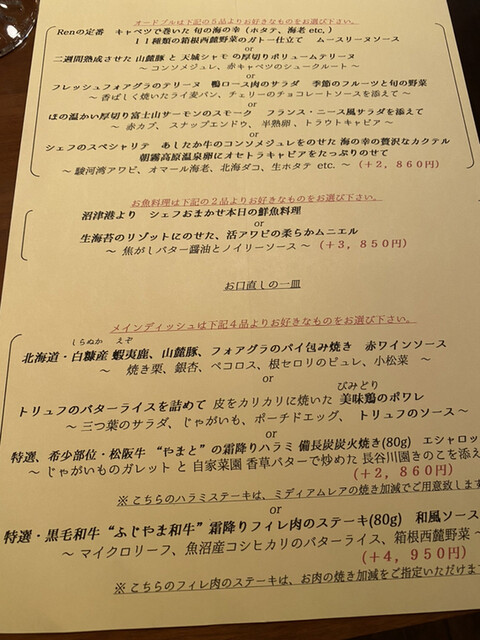 オードブルは下記の5品よりお好きなものをお選び下さい。
Renの定番　キャベツで巻いた 旬の海の幸（ホタテ、海老 etc.）
１１種類の箱根西麓野菜のガトー仕立て　ムースリーヌソース
or
二週間熟成させた 山麓豚 と 天城シャモ の厚切りボリュームテリーヌ
～ コンソメジュレ、赤キャベツのシュークルート ～
or
フレッシュフォアグラのテリーヌ　鴨ロース肉のサラダ　季節のフルーツと旬の野菜
～ 香ばしく焼いたライ麦パン、チェリーのチョコレートソースを添えて ～
or
ほの温かい厚切り富士山サーモンのスモーク　フランス・ニース風サラダを添えて
～ 赤カブ、スナップエンドウ、半熟卵、トラウトキャビア ～
or
シェフのスペシャリテ　あしたか牛のコンソメジュレをのせた 海の幸の贅沢なカクテル
朝霧高原温泉卵にオセトラキャビアをたっぷりのせて
～ 駿河湾アワビ、オマール海老、北海ダコ、生ホタテ etc. ～（＋2,860円）
お魚料理は下記の2品よりお好きなものをお選び下さい。
沼津港より　シェフおまかせ本日の鮮魚料理
or
生海苔のリゾットにのせた、活アワビの柔らかムニエル
～ 焦がしバター醤油とノイリーソース ～（＋3,850円）
お口直しの一皿
メインディッシュは下記4品よりお好きなものをお選び下さい。
北海道・白糠産 蝦夷鹿、山麓豚、フォアグラのパイ包み焼き　赤ワインソース
しらぬか　えぞ
～ 焼き栗、銀杏、ペコロス、根セロリのピュレ、小松菜　～
or
トリュフのバターライスを詰めて 皮をカリカリに焼いた 美味鶏のポワレ
びみどり
～ 三つ葉のサラダ、じゃがいも、ポーチドエッグ、　トリュフのソース～
or
特選、希少部位・松阪牛　“やまと”の霜降りハラミ 備長炭炭火焼き(80g)　エシャロッ
～ じゃがいものガレット と 自家菜園 香草バターで炒めた 長谷川園きのこを添え
（＋2,860円）
※こちらのハラミステーキは、ミディアムレアの焼き加減でご用意致します
or
特選・黒毛和牛 “ふじやま和牛” 霜降りフィレ肉のステーキ(80g)　和風ソース
～ マイクロリーフ、魚沼産コシヒカリのバターライス、箱根西麓野菜 ～
（＋4,950円）
※こちらのフィレ肉のステーキは、お肉の焼き加減をご指定いただけます